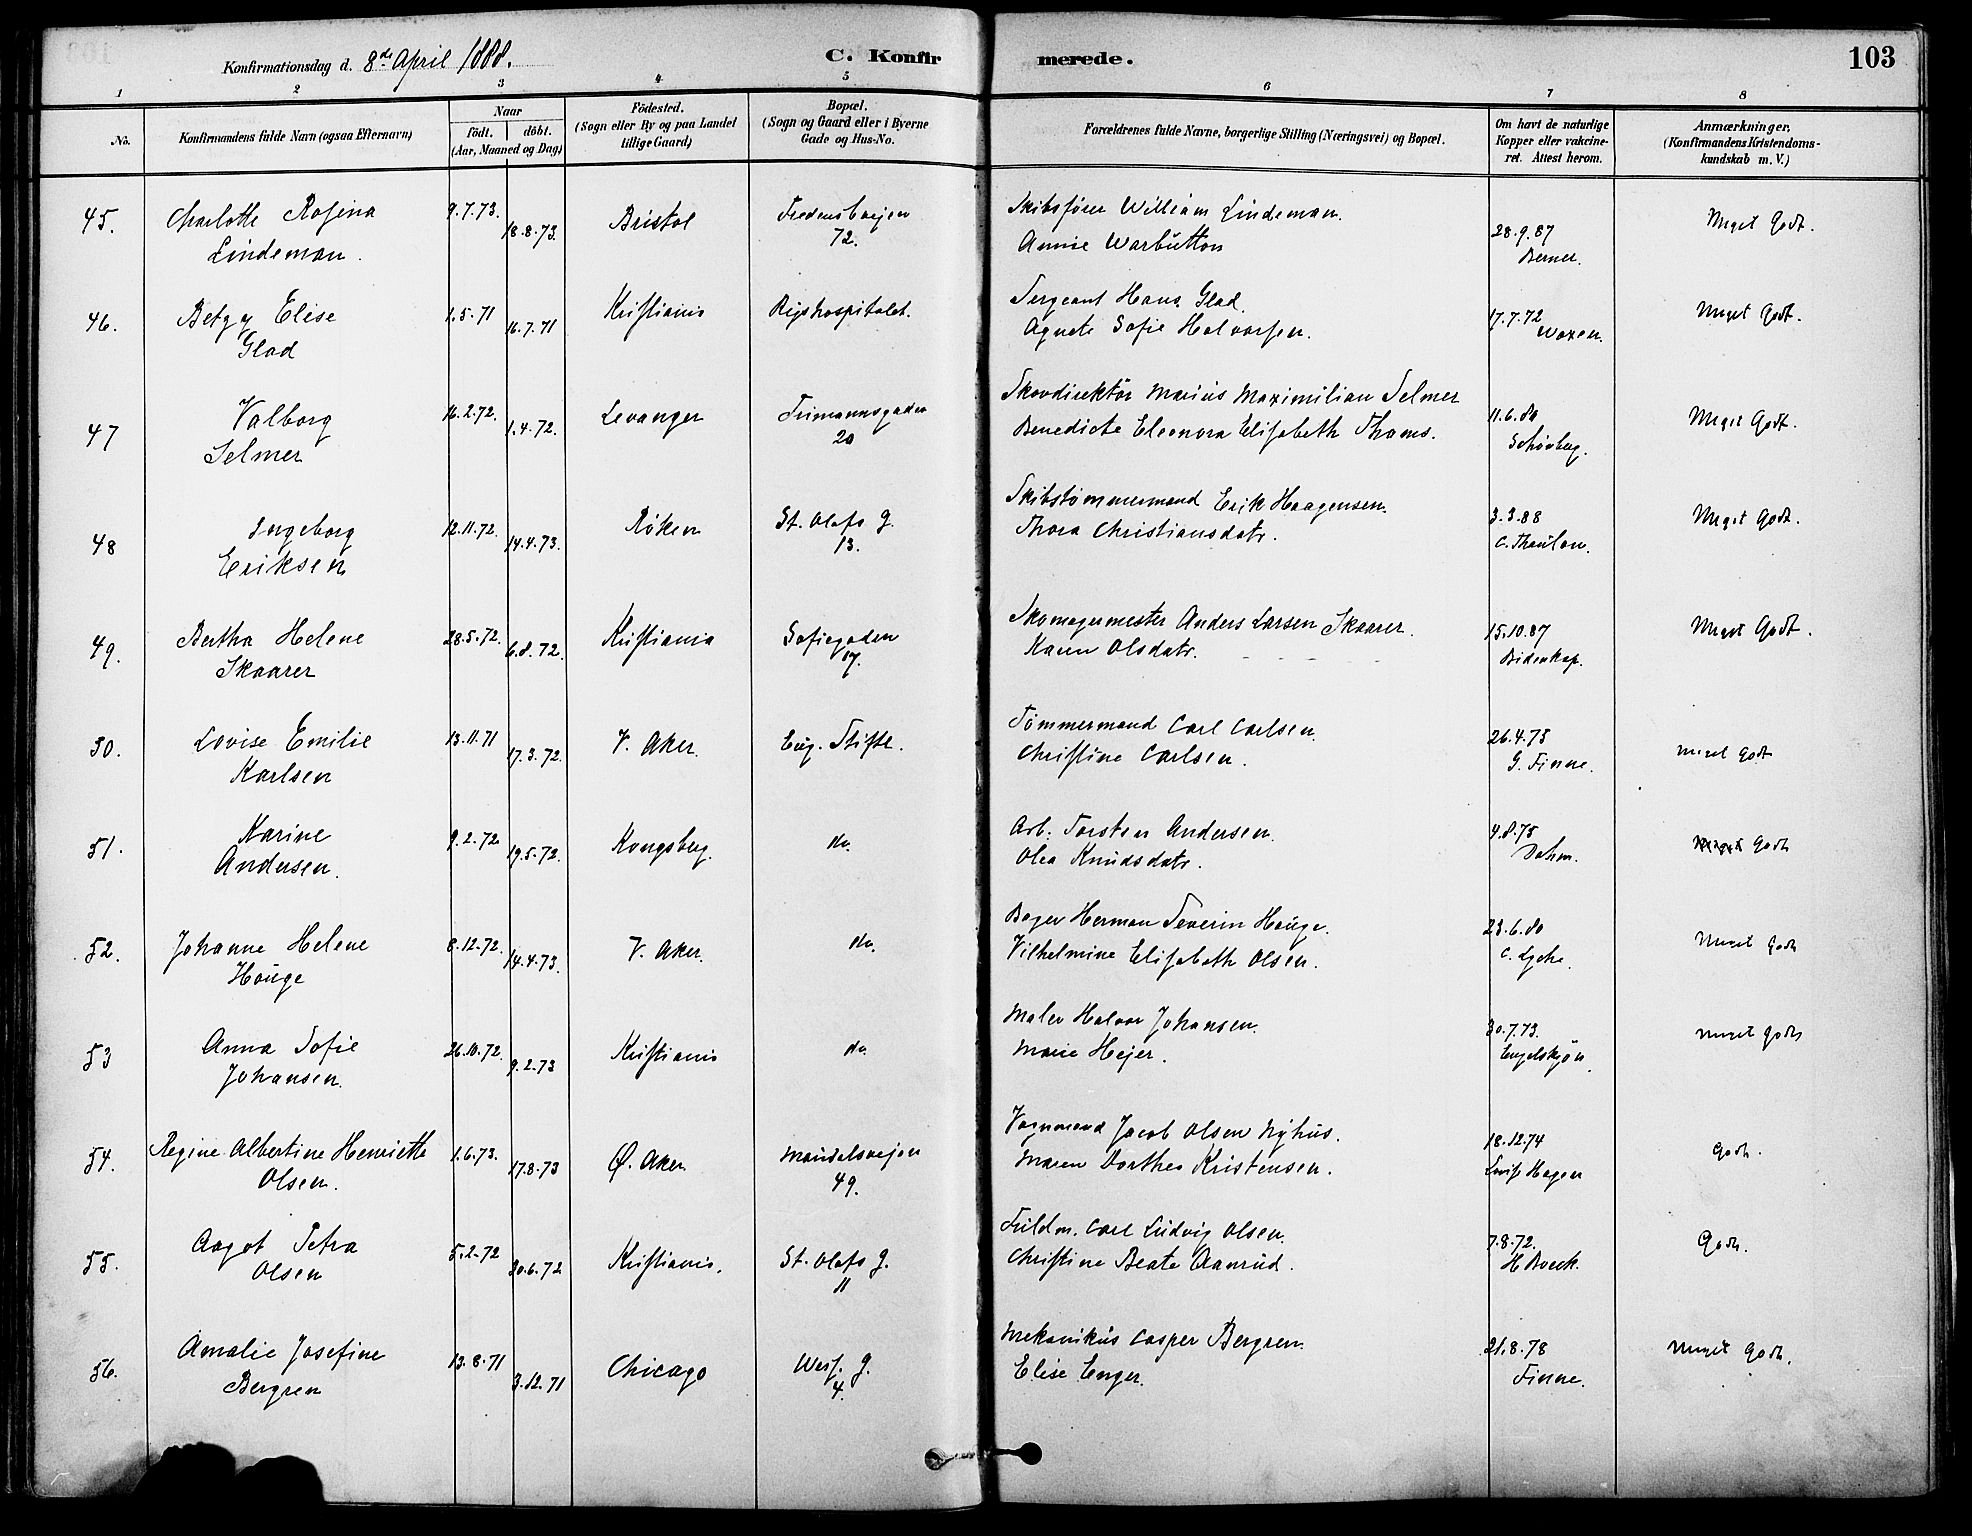 Konfirmationsdag d. 8de April 1888.
C. Konfirmerede.
103
1 2 3 4 5 6 7 8
No.
Konfirmandens fulde Navn (ogsaa Efternavn)
Naar
födt. döbt.
(Aar, Maaned og Dag)
Födested.
(Sogn eller By og paa Landet
tillige Gaard)
Bopæl.
(Sogn og Gaard eller i Byerne
Gade og Hus-No.
Forældrenes fulde Navne, borgerlige Stilling (Næringsvei) og Bopæl.
Om havt de naturlige
Kopper eller vakcine-
ret. Attest herom.
Anmærkninger.
(Konfirmandens Kristendoms-
kundskab m. V.)
45. Charlotte Rosina 9.7.73. 18.8.73. Bristol Fredensborgveien Skibsfører William Lindeman. 28.9.87 Meget Godt.
Lindeman. 72. Annie Warbutton Berner.
46. Betzy Elise 1.5.71 16.7.71 Kristiania Rigshospitalet. Sergeant Hans Glad. 17.7.72 Meget Godt.
Glad Agnete Sofie Halvorsen.
47 Valborg 16.2.72. 1.4.72. Levanger 20 Skovdirektør Marius Maximilian Selmer 11.6.80 Meget Godt.
Selmer Benedicte Eleonora Elisabeth Thams. Schiøtberg.
48 Ingeborg 12.11.72. 14.4.73. Røken St. Olafs g. Skibstømmermand Erik Haagensen. 3.3.88 Meget Godt.
Eriksen 13. Thora Christiansdatr. C. Thaulow.
49. Bertha Helene 28.5.72. 6.8.72. Kristiania Sofiegaden Skomagermester Anders Larsen Skaarer. 15.10.87 Meget Godt.
Skaarer 17. Karen Olsdatr. Bidenkap.
50. Lovise Emilie 13.11.71 17.3.72. V. Aker. Eug. Stifte. Tømmermand Carl Carlsen. 26.4.75 Meget Godt
Karlsen Christine Carlsen. G. Finne.
51. Karine 9.2.72 19.5.72. Kongsberg. do. Arb. Torsten Andersen. 4.8.75 Meget Godt
Andersen. Olea Knudsdatr. Dahm.
52. Johanne Helene 8.12.72. 14.4.73. V. Aker. do. Bager Herman Severin Houge. 23.6.80 Meget Godt
Houge Vilhelmine Elisabeth Olsen. C. Lyche.
53 Anna Sofie 26.10.72. 9.2.73 Kristiania do. Maler Halvor Johansen. 30.7.73. Meget Godt
Johansen. Marie Hejer. Engelskjøn.
54. Regine Albertine Henriette 1.6.73. 17.8.73 Ø. Aker Maridalsvejen Vognmand Jacob Olsen Nyhus. 18.12.74 Godt.
Olsen. 49. Maren Dorthea Kristensen. Hagen
55. Aagot Petra 5.2.72 30.6.72 Kristiania. St. Olafs g. Fuldm. Carl Ludvig Olsen. 7.8.72. Godt.
Olsen 11 Christine Beate Aamrud. H Boeck.
56. Amalie Josefine 13.8.71 3.12.71 Chicago g. Mekanikus Casper Bergren. 21.8.78 Meget Godt.
Bergren 4. Elise Enger. Finne.